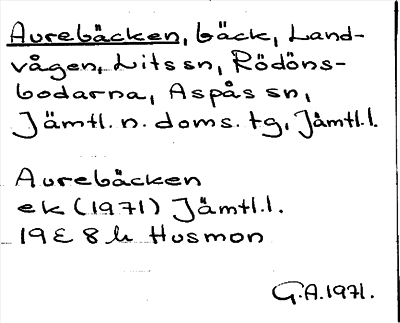 Aurebäcken, bäck, Land-
vågen, Lits sn, Rödöns-
bodarna, Aspås sn,
Jämtl. n. doms. tg, Jämtl. l.
Aurebäcken
ek (1971) Jämtl. l.
19 E 8 h Husmon
G.A. 1971.